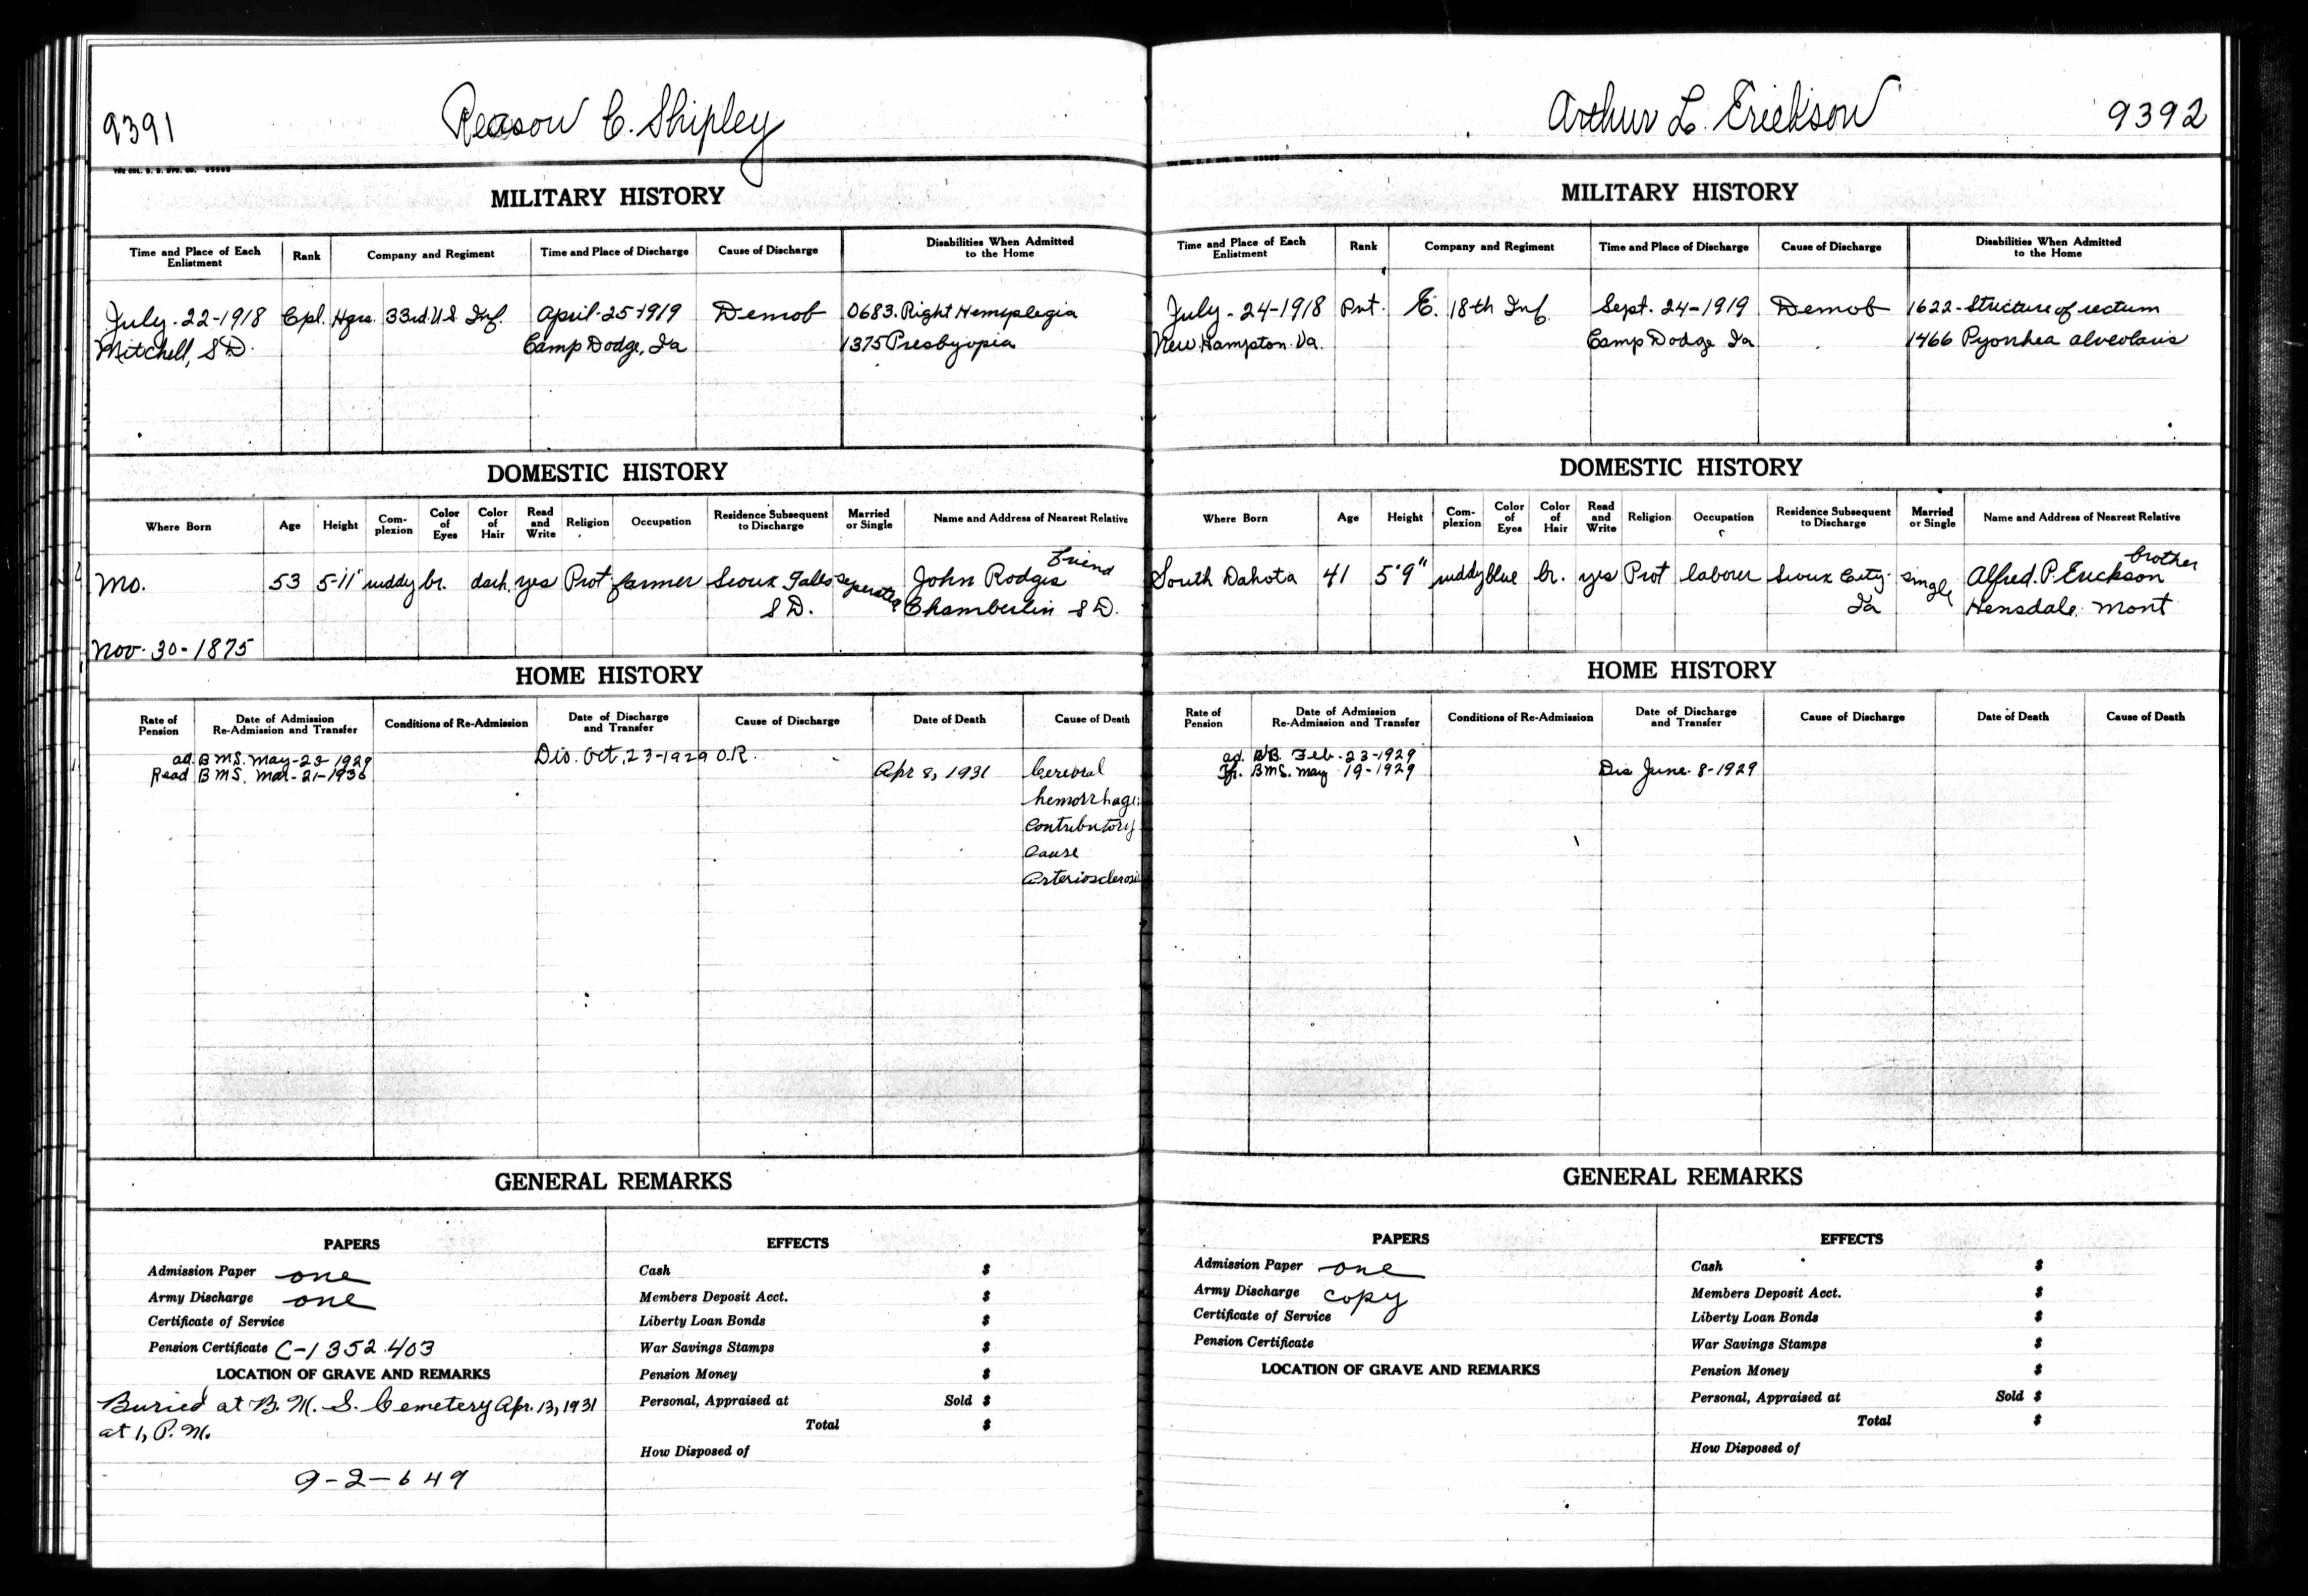 9391
Reason C. Shipley
MILITARY HISTORY
Time and Place of Each Enlistment Rank Company and Regiment Time and Place of Discharge Cause of Discharge Disabilities When Admitted to the Home
July-22-1918 Cpl. Hqrs. 33rd. U S Inf. April-25-1919 Demob 0683. Right Hemyplegia
Mitchell, S D. Camp Dodge, Ia 1375 Presbyopia
DOMESTIC HISTORY
Where Born Age Height Complexion Color of Eyes Color of Hair Read and Write Religion Occupation Residence Subsequent to Discharge Married or Single Name and Address of Nearest Relative
friend
Mo. 53 5-11" ruddy br. dark yes Prot farmer Sioux Falls seperated John Rodgis
S D. Chamberlin S D.
Nov-30-1875
HOME HISTORY
Rate of Pension Date of Admission Re-Admission and Transfer Conditions of Re-Admission Date of Discharge and Transfer Cause of Discharge Date of Death Cause of Death
ad. B M S. May-23-1929 Dis. Oct. 23-1929 O.R.
Read B M S. Mar-21-1930 Apr 8, 1931 Cerebral
hemorrhage;
Contributory
Cause
Arteriosclerosis
GENERAL REMARKS
PAPERS
Admission Paper one
Army Discharge one
Certificate of Service
Pension Certificate C-1352.403
LOCATION OF GRAVE AND REMARKS
Buried at B. M. S. Cemetery Apr. 13, 1931
at 1, P. M.
9-2-649
EFFECTS
Cash $
Members Deposit Acct. $
Liberty Loan Bonds $
War Savings Stamps $
Pension Money $
Personal, Appraised at Sold $
Total $
How Disposed of
Arthur L. Erickson
9392
MILITARY HISTORY
Time and Place of Each Enlistment Rank Company and Regiment Time and Place of Discharge Cause of Discharge Disabilities When Admitted to the Home
July-24-1918 Pvt. E. 18th Inf. Sept. 24-1919 Demob 1622-Stricture of rectum
New Hampton. Camp Dodge Ia 1466 Pyorrhea alveolaris
DOMESTIC HISTORY
Where Born Age Height Complexion Color of Eyes Color of Hair Read and Write Religion Occupation Residence Subsequent to Discharge Married or Single Name and Address of Nearest Relative
brother
South Dakota 41 5'9" ruddy blue br. yes Prot laborer Sioux City- single Alfred. P. Erickson
Ia Hensdale, Mont
HOME HISTORY
Rate of Pension Date of Admission Re-Admission and Transfer Conditions of Re-Admission Date of Discharge and Transfer Cause of Discharge Date of Death Cause of Death
ad. Feb. 23-1929
Tr. B M S. May 19-1929 Dis June. 8-1929
GENERAL REMARKS
PAPERS
Admission Paper one
Army Discharge copy
Certificate of Service
Pension Certificate
LOCATION OF GRAVE AND REMARKS
EFFECTS
Cash $
Members Deposit Acct. $
Liberty Loan Bonds $
War Savings Stamps $
Pension Money $
Personal, Appraised at Sold $
Total $
How Disposed of